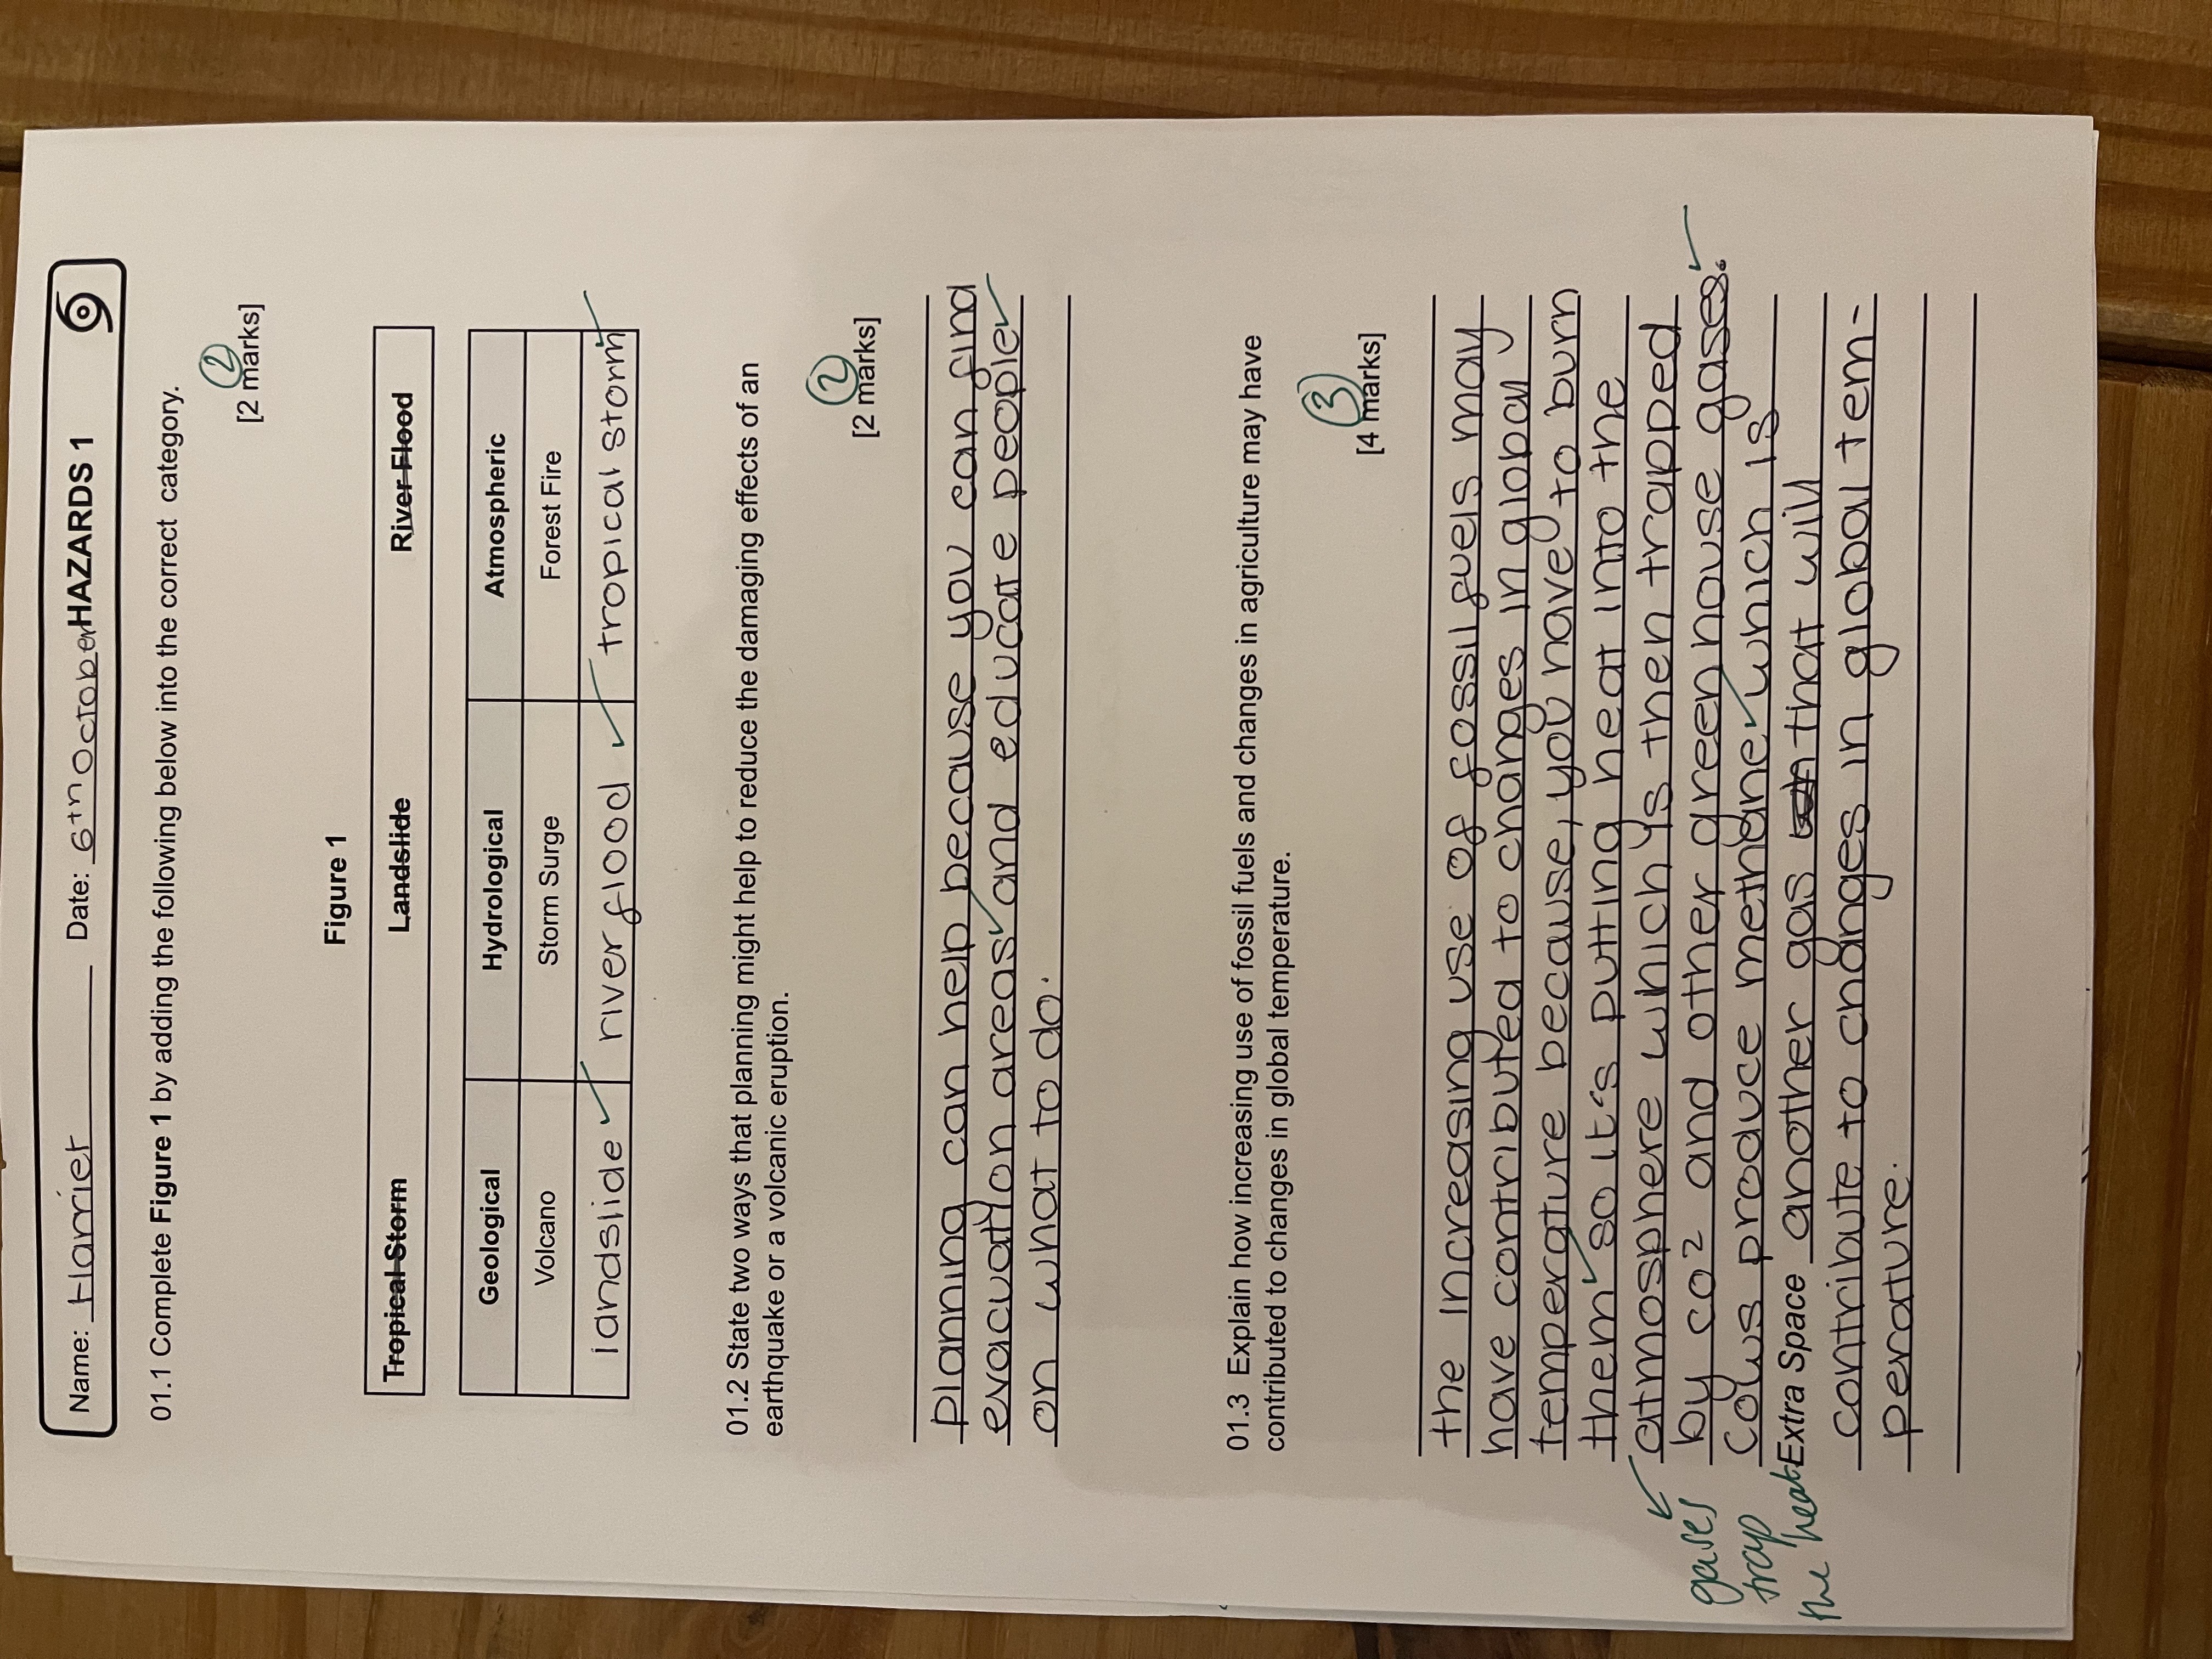 Name: Harriet Date: 6th October HAZARDS 1
01.1 Complete Figure 1 by adding the following below into the correct category.
2
[2 marks]
Figure 1
Tropical Storm Landslide River Flood
Geological Hydrological Atmospheric
Volcano Storm Surge Forest Fire
landslide river flood tropical storm
01.2 State two ways that planning might help to reduce the damaging effects of an
earthquake or a volcanic eruption.
2
[2 marks]
planning can help because you can find
evacuation areas and educate people
on what to do.
01.3 Explain how increasing use of fossil fuels and changes in agriculture may have
contributed to changes in global temperature.
3
[4 marks]
the increasing use of fossil fuels may
have contributed to changes in global
temperature because, you have to burn
them so it's putting heat into the
atmosphere which is then trapped
by co2 and other green house gases.
Cows produce methane which is
gases
trap
the heat
Extra Space another gas that will
contribute to changes in global tem-
perature.